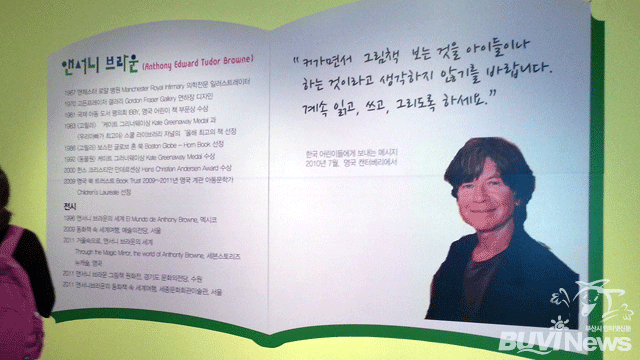 앤서니 브라운 (Anthony Edward Tudor Browne)
1967 맨체스터 로얄 병원 Manchester Royal Infirmary 의학전문 일러스트레이터
1970 고든프레이저 갤러리 Gordon Fraser Gallery 연하장 디자인
1981 국제 아동 도서 평의회 IBBY, 영국 어린이 책 부문상 수상
1983 《고릴라》 케이트 그리너웨이상 Kate Greenaway Medal 과
《우리아빠가 최고야》 스쿨 라이브러리 저널의 '올해 최고의 책' 선정
1986 《고릴라》 보스턴 글로브 혼 북 Boston Globe – Horn Book 선정
1992 《동물원》 케이트 그리너웨이상 Kate Greenaway Medal 수상
2000 한스 크리스티안 안데르센상 Hans Christian Andersen Award 수상
2009 영국 북 트러스트 Book Trust 2009~2011년 영국 계관 아동문학가
Children's Laureate 선정
전시
1998 앤서니 브라운의 세계 El Mundo de Anthony Browne, 멕시코
2009 동화책 속 세계여행, 예술의전당, 서울
2011 거울속으로, 앤서니 브라운의 세계
Through the Magic Mirror, the world of Anthony Browne, 세븐스토리즈
뉴캐슬, 영국
2011 앤서니 브라운 그림책 원화전, 경기도 문화의전당, 수원
2011 앤서니브라운의 동화책 속 세계여행, 세종문화회관미술관, 서울
"커가면서 그림책 보는 것을 아이들이나
하는 것이라고 생각하지 않기를 바랍니다.
계속 읽고, 쓰고, 그리도록 하세요."
한국 어린이들에게 보내는 메시지
2010년 7월, 영국 켄터베리에서
부산시 인터넷신문
BUVI News